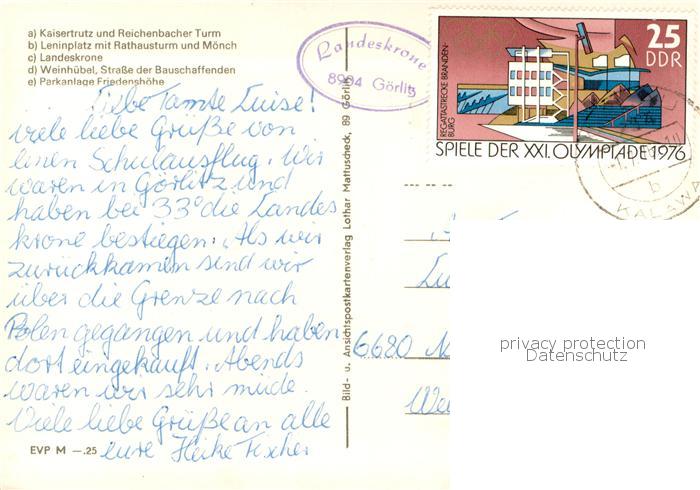 a) Kaisertrutz und Reichenbacher Turm
b) Leninplatz mit Rathausturm und Mönch
c) Landeskrone
d) Weinhübel, Straße der Bauschaffenden
e) Parkanlage Friedenshöhe
Liebe Tante Luise!
viele liebe Grüße von
einen Schulausflug. Wir
waren in Görlitz und
haben bei 33° die Landes
krone bestiegen. Als wir
zurückkamen sind wir
über die Grenze nach
Polen gegangen und haben
dort eingekauft. Abends
waren wir sehr müde.
Viele liebe Grüße an alle
eure Heike Fischer
EVP M —.25
Bild- u. Ansichtspostkartenverlag Lothar Mattuscheck, 89 Görlitz
Landeskrone
8904 Görlitz
25
DDR
REGATTASTRECKE BRANDEN-
BURG
SPIELE DER XXI. OLYMPIADE 1976
b
KALAWA
Lu
6620
We
privacy protection
Datenschutz